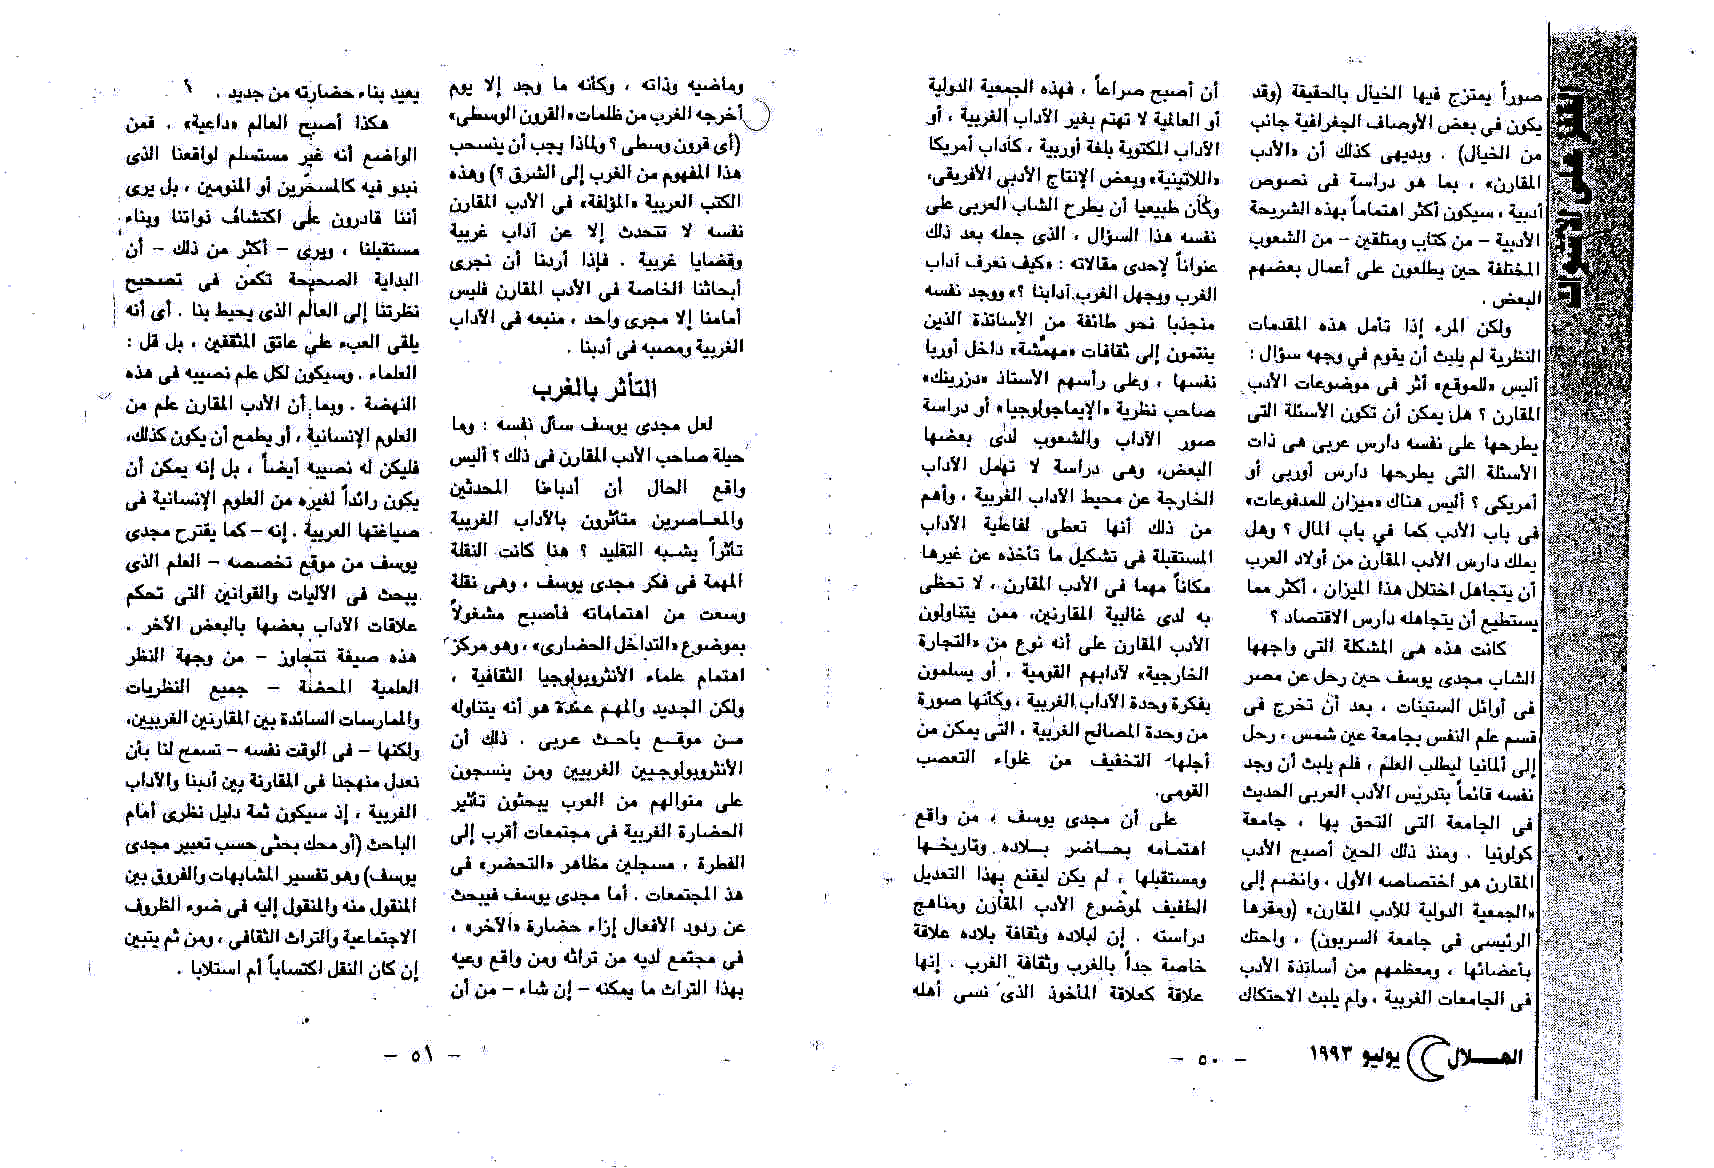 السير على الأشواك
صوراً يمتزج فيها الخيال بالحقيقة (وقد
يكون في بعض الأوصاف الجغرافية جانب
من الخيال) . وبديهى كذلك أن «الأدب
المقارن» ، بما هو دراسة فى نصوص
أدبية ، سيكون أكثر اهتماماً بهذه الشريحة
الأدبية – من كتاب ومتلقين – من الشعوب
المختلفة حين يطلعون على أعمال بعضهم
البعض .
ولكن المرء إذا تأمل هذه المقدمات
النظرية لم يلبث أن يقوم في وجهه سؤال :
أليس «للموقع» أثر فى موضوعات الأدب
المقارن ؟ هل يمكن أن تكون الأسئلة التى
يطرحها على نفسه دارس عربى هى ذات
الأسئلة التى يطرحها دارس أوربى أو
أمريكى ؟ أليس هناك «ميزان للمدفوعات»
فى باب الأدب كما في باب المال ؟ وهل
يملك دارس الأدب المقارن من أولاد العرب
أن يتجاهل اختلال هذا الميزان ، أكثر مما
يستطيع أن يتجاهله دارس الاقتصاد ؟
كانت هذه هى المشكلة التى واجهها
الشاب مجدى يوسف حين رحل عن مصر
فى أوائل الستينات ، بعد أن تخرج فى
قسم علم النفس بجامعة عين شمس ، رحل
إلى ألمانيا ليطلب العلم ، فلم يلبث أن وجد
نفسه قائماً بتدريس الأدب العربى الحديث
فى الجامعة التى التحق بها ، جامعة
كولونيا . ومنذ ذلك الحين أصبح الأدب
المقارن هو اختصاصه الأول ، وانضم إلى
«الجمعية الدولية للأدب المقارن» (ومقرها
الرئيسى فى جامعة السربون) ، واحتك
بأعضائها ، ومعظمهم من أساتذة الأدب
فى الجامعات الغربية ، ولم يلبث الاحتكاك
أن أصبح صراعاً ، فهذه الجمعية الدولية
أو العالمية لا تهتم بغير الآداب الغربية ، أو
الآداب المكتوبة بلغة أوربية ، كآداب أمريكا
«اللاتينية» وبعض الإنتاج الأدبى الأفريقى،
وكان طبيعيا أن يطرح الشاب العربى على
نفسه هذا السؤال ، الذى جعله بعد ذلك
عنواناً لإحدى مقالاته : «كيف نعرف آداب
الغرب ويجهل الغرب آدابنا ؟» ووجد نفسه
منجذبا نحو طائفة من الأساتذة الذين
ينتمون إلى ثقافات «مهمّشة» داخل أوربا
نفسها ، وعلى رأسهم الأستاذ «دزرينك»
صاحب نظرية «الإيماجولوجيا» أو دراسة
صور الآداب والشعوب لدى بعضها
البعض، وهى دراسة لا تهمل الآداب
الخارجة عن محيط الآداب الغربية ، وأهم
من ذلك أنها تعطى لفاعلية الآداب
المستقبلة فى تشكيل ما تأخذه عن غيرها
مكاناً مهما فى الأدب المقارن ، لا تحظى
به لدى غالبية المقارنين، ممن يتناولون
الأدب المقارن على أنه نوع من «التجارة
الخارجية» لآدابهم القومية ، أو يسلمون
بفكرة وحدة الآداب الغربية ، وكأنها صورة
من وحدة المصالح الغربية ، التى يمكن من
أجلها التخفيف من غلواء التعصب
القومى.
على أن مجدى يوسف ، من واقع
اهتمامه بحاضر بلاده وتاريخها
ومستقبلها ، لم يكن ليقنع بهذا التعديل
الطفيف لموضوع الأدب المقارن ومناهج
دراسته . إن لبلاده وثقافة بلاده علاقة
خاصة جداً بالغرب وثقافة الغرب . إنها
علاقة كعلاقة المأخوذ الذى نسى أهله
الهلال يوليو ١٩٩٣
– ٥٠ –
وماضيه وذاته ، وكأنه ما وجد إلا يوم
أخرجه الغرب من ظلمات «القرون الوسطى»
(أى قرون وسطى ؟ ولماذا يجب أن ينسحب
هذا المفهوم من الغرب إلى الشرق ؟) وهذه
الكتب العربية «المؤلفة» فى الأدب المقارن
نفسه لا تتحدث إلا عن آداب غربية
وقضايا غربية . فإذا أردنا أن نجرى
أبحاثنا الخاصة فى الأدب المقارن فليس
أمامنا إلا مجرى واحد ، منبعه فى الآداب
الغربية ومصبه فى أدبنا .
التأثر بالغرب
لعل مجدى يوسف سأل نفسه : وما
حيلة صاحب الأدب المقارن فى ذلك ؟ أليس
واقع الحال أن أدباءنا المحدثين
والمعاصرين متأثرون بالآداب الغربية
تأثراً يشبه التقليد ؟ هنا كانت النقلة
المهمة فى فكر مجدى يوسف ، وهى نقلة
وسعت من اهتماماته فأصبح مشغولاً
بموضوع «التداخل الحضارى» ، وهو مركز
اهتمام علماء الأنثروبولوجيا الثقافية ،
ولكن الجديد والمهم عنده هو أنه يتناوله
من موقع باحث عربى . ذلك أن
الأنثروبولوجيين الغربيين ومن ينسجون
على منوالهم من العرب يبحثون تأثير
الحضارة الغربية فى مجتمعات أقرب إلى
الفطرة ، مسجلين مظاهر «التحضر» فى
هذ المجتمعات . أما مجدى يوسف فيبحث
عن ردود الأفعال إزاء حضارة «الآخر» ،
فى مجتمع لديه من تراثه ومن واقع وعيه
بهذا التراث ما يمكنه – إن شاء – من أن
يعيد بناء حضارته من جديد .
هكذا أصبح العالم «داعية» . فمن
الواضع أنه غير مستسلم لواقعنا الذى
نبدو فيه كالمسخّرين أو المنومين ، بل يرى
أننا قادرون على اكتشاف ذواتنا وبناء
مستقبلنا ، ويرى – أكثر من ذلك – أن
البداية الصحيحة تكمن فى تصحيح
نظرتنا إلى العالم الذى يحيط بنا . أى أنه
يلقى العبء على عاتق المثقفين ، بل قل :
العلماء . وسيكون لكل علم نصيبه فى هذه
النهضة . وبما أن الأدب المقارن علم من
العلوم الإنسانية ، أو يطمح أن يكون كذلك،
فليكن له نصيبه أيضاً ، بل إنه يمكن أن
يكون رائداً لغيره من العلوم الإنسانية فى
صياغتها العربية . إنه – كما يقترح مجدى
يوسف من موقع تخصصه – العلم الذى
يبحث فى الآليات والقوانين التى تحكم
علاقات الآداب بعضها بالبعض الآخر .
هذه صيغة تتجاوز – من وجهة النظر
العلمية المحضة – جميع النظريات
والممارسات السائدة بين المقارنين الغربيين،
ولكنها – فى الوقت نفسه – تسمح لنا بأن
نعدل منهجنا فى المقارنة بين أدبنا والآداب
الغربية ، إذ سيكون ثمة دليل نظرى أمام
الباحث (أو محك بحثى حسب تعبير مجدى
يوسف) وهو تفسير المشابهات والفروق بين
المنقول منه والمنقول إليه فى ضوء الظروف
الاجتماعية والتراث الثقافى ، ومن ثم يتبين
إن كان النقل اكتساباً أم استلابا .
– ٥١ –